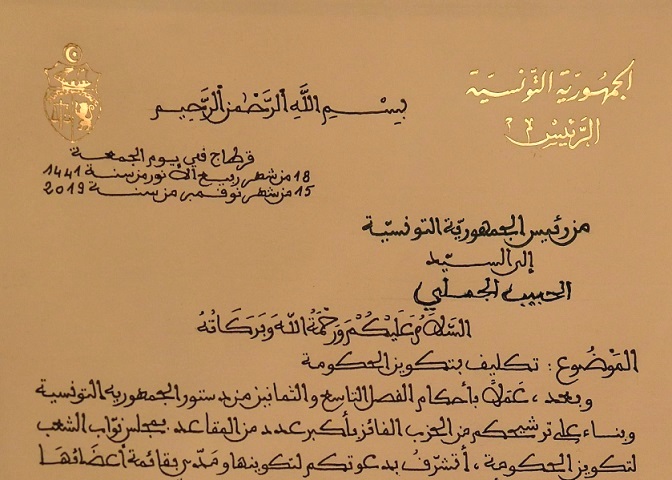 الجمهورية التونسية
الرئيس
بِسْمِ اللَّهِ الرَّحْمٰنِ الرَّحِيمِ
قرطاج في يوم الجمعة
18 من شهر ربيع الأنور من سنة 1441
15 من شهر نوفمبر من سنة 2019
من رئيس الجمهوريّة التونسيّة
إلى السيّد
الحبيب الجملي
السَّلَامُ عَلَيْكُمْ وَرَحْمَةُ اللَّهِ وَبَرَكَاتُهُ
المَوْضُوع : تكليف بتكوين الحكومة
وبعد، عَمَلًا بأحكام الفصل التاسع والثمانين من دستور الجمهورية التونسية
وبناء على ترشيحكم من الحزب الفائز بأكبر عدد من المقاعد بمجلس نوّاب الشعب
لتكوين الحكومة، أتشرّف بدعوتكم لتكوينها ومدّي بقائمة أعضائها